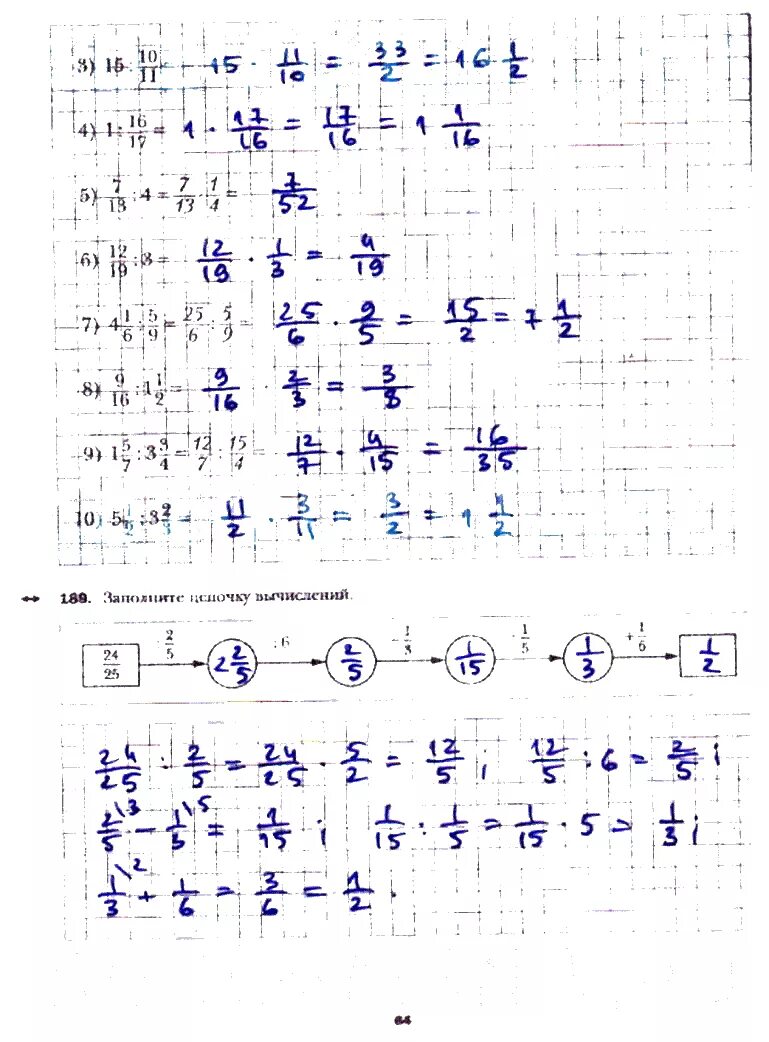 3) 15 : 10/11 = 15 · 11/10 = 33/2 = 16 1/2
4) 1 : 16/17 = 1 · 17/16 = 17/16 = 1 1/16
5) 7/13 : 4 = 7/13 · 1/4 = 7/52
6) 12/19 : 3 = 12/19 · 1/3 = 4/19
7) 4 1/6 : 5/9 = 25/6 : 5/9 = 25/6 · 9/5 = 15/2 = 7 1/2
8) 9/16 : 1 1/2 = 9/16 · 2/3 = 3/8
9) 1 5/7 : 3 3/4 = 12/7 : 15/4 = 12/7 · 4/15 = 16/35
10) 5 1/2 : 3 2/3 = 11/2 · 3/11 = 3/2 = 1 1/2
189. Заполните цепочку вычислений.
24/25 : 2/5 2 2/5 : 6 2/5 - 1/3 1/15 : 1/5 1/3 + 1/6 1/2
24/25 : 2/5 = 24/25 · 5/2 = 12/5 ; 12/5 : 6 = 2/5 ;
2/5 \3 - 1/3 \5 = 1/15 ; 1/15 : 1/5 = 1/15 · 5 = 1/3 ;
1/3 \2 + 1/6 = 3/6 = 1/2 .
64